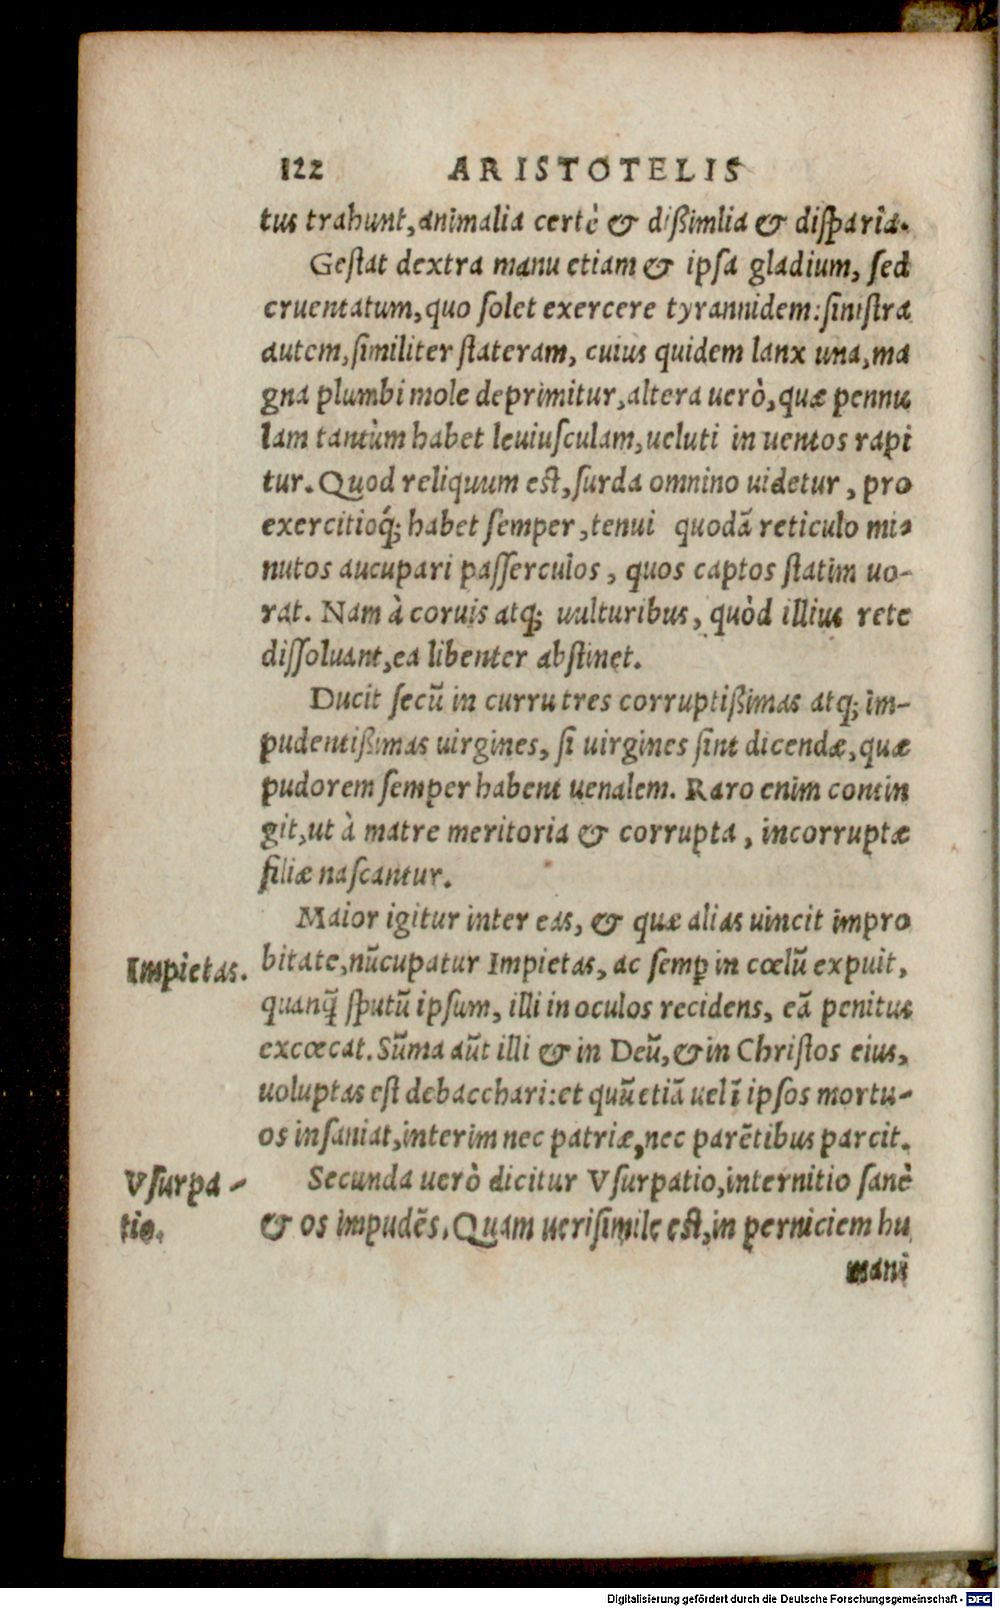 122 ARISTOTELIS
tus trahunt, animalia certè & dißimlia & disparia.
Gestat dextra manu etiam & ipsa gladium, sed
cruentatum, quo solet exercere tyrannidem: sinistra
autem, similiter stateram, cuius quidem lanx una, ma
gna plumbi mole deprimitur, altera uerò, quæ pennu
lam tantùm habet leuiusculam, ueluti in uentos rapi
tur. Quod reliquum est, surda omnino uidetur, pro
exercitioq́; habet semper, tenui quodã reticulo mi-
nutos aucupari passerculos, quos captos statim uo-
rat. Nam à coruis atq; uulturibus, quòd illius rete
dissoluant, ea libenter abstinet.
Ducit secũ in curru tres corruptißimas atq; im-
pudentißimas uirgines, si uirgines sint dicendæ, quæ
pudorem semper habent uenalem. Raro enim contin
git, ut à matre meritoria & corrupta, incorruptæ
filiæ nascantur.
Maior igitur inter eas, & quæ alias uincit impro
Impietas. bitate, nũcupatur Impietas, ac semp̱ in cœlũ expuit,
quanq̃ sputũ ipsum, illi in oculos recidens, eã penitus
excœcat. Sũma aũt illi & in Deũ, & in Christos eius,
uoluptas est debacchari: et quũ etiã uel ĩ ipsos mortu-
os insaniat, interim nec patriæ, nec parẽtibus parcit.
Vsurpa- Secunda uerò dicitur Vsurpatio, internitio sanè
tio. & os impudẽs. Quam uerisimile est, in perniciem hu
mani
Digitalisierung gefördert durch die Deutsche Forschungsgemeinschaft - DFG